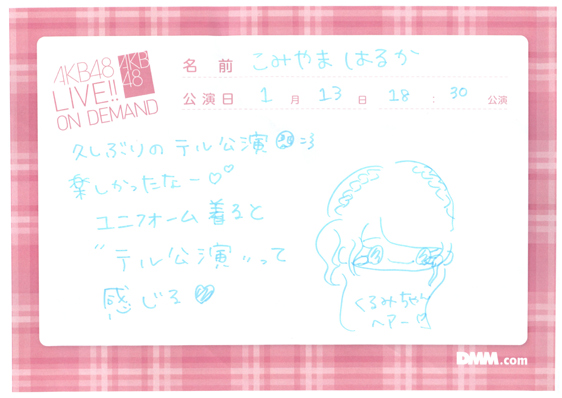 AKB48
LIVE!!
ON DEMAND
AKB
48
名前 こみやま はるか
公演日 1月 13日 18:30公演
久しぶりの テル公演
楽しかったなー♡♡
ユニフォーム 着ると
"テル公演"って
感じる♡
くるみちゃん
ヘアー
DMM.com